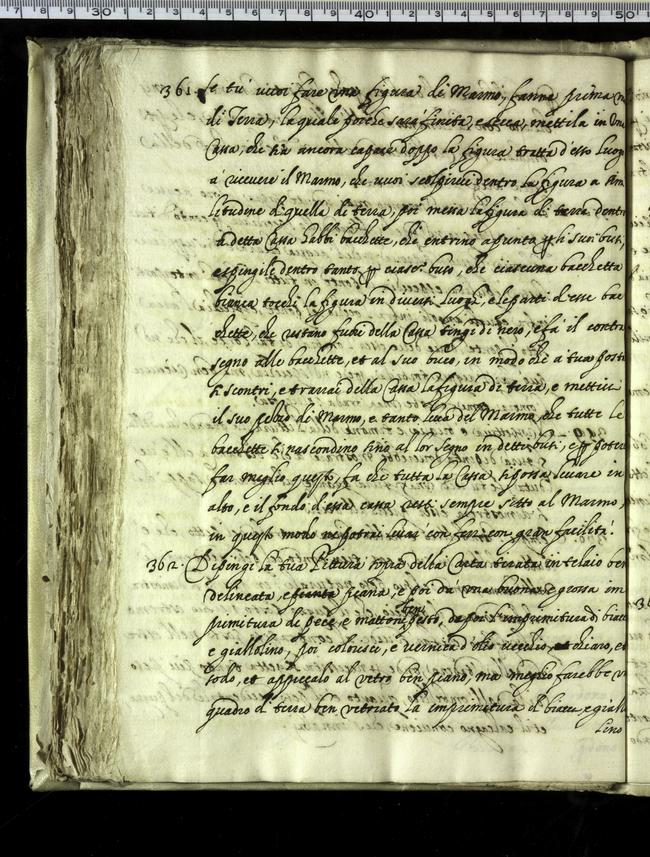 361. Se tu vuoi fare una figura di Marmo, fanne prima
di Terra, la quale poiche sarà finita, e secca, mettila in Una
Cassa, che sia ancora capace doppo la figura tratta d'esso luog
a ricevere il Marmo, che vuoi scolpirvi dentro la figura a sim
litudine di quella di terra, poi messa la figura di terra dentr
a detta Cassa habbi bacchette, che entrino apunto p li suoi busi,
e spingile dentro tanto p ciasc. buso, che ciascuna bacchetta
bianca tocchi la figura in diversi luoghi, e le parti d'esse bac
chette, che restano fuori della Cassa tingi di nero, e fa il contra
segno alle bacchette, et al suo buco, in modo che a tua posta
si scontri, e trarrai della Cassa la figura di terra, e mettivi
il suo pezzo di Marmo, e tanto leva del Marmo, che tutte le
bacchette si nascondino sino al lor segno in detti busi, e p poter
far meglio questo, fa che tutta la Cassa si possa levare in
alto, e il fondo d'essa cassa resti sempre sotto al Marmo,
in questo modo ne potrai levar con ferri con gran facilità.
362. Dipingi la tua Pittura sopra della Carta tirata in telaio ben
delineata, e piana, e poi dà una buona e grossa im
primitura di pece, e mattone ben pesto, da poi l'imprimitura di biacca
e giallolino, poi colorisci, e vernica d'olio vecchio, chiaro, e
sodo, et appiccalo al vetro ben piano, ma meglio farebbe
quadro di terra ben vetriato, la imprimitura di biacca, e giall
lino